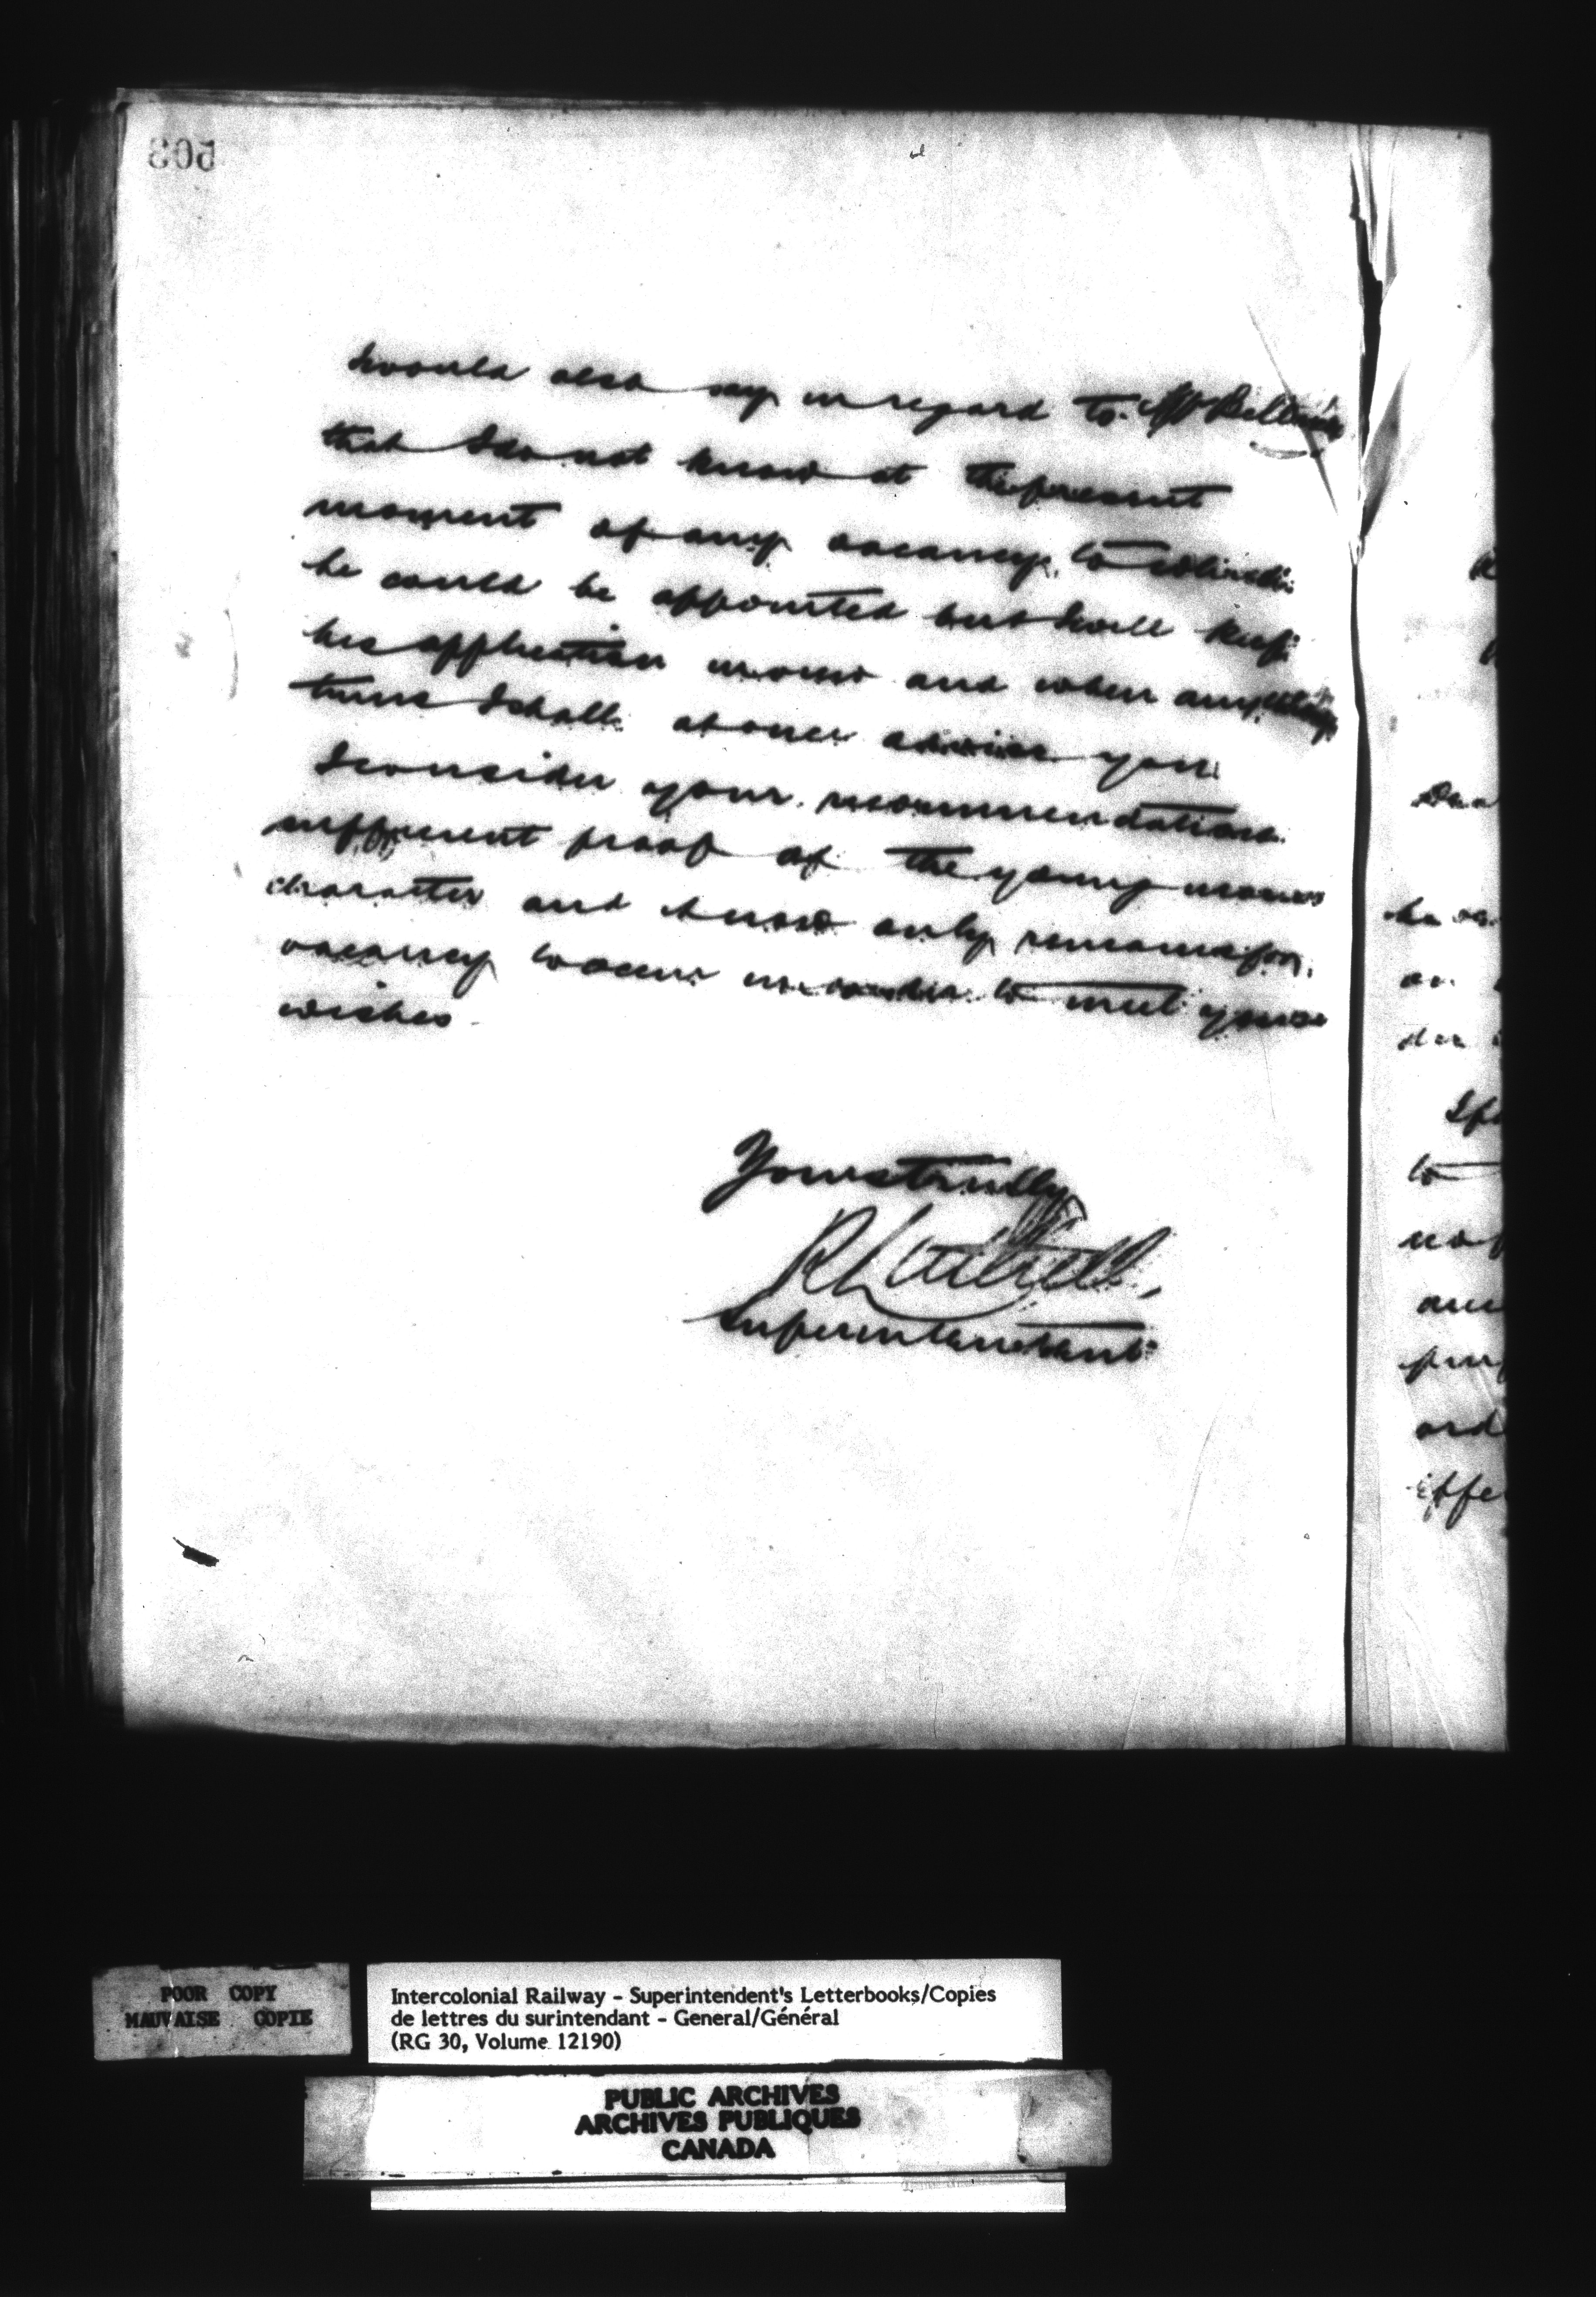 503
I would also say in regard to Mr
that I do not know at the present
moment of any vacancy to which
he could be appointed but I will keep
his application in view and when anything
turns I shall at once advise you
I consider your recommendations
sufficient proof of the young mans
character and it now only remains for
vacancy to occur in order to meet your
wishes
Yours truly
R Luttrell
Superintendent
POOR COPY
MAUVAISE COPIE
Intercolonial Railway - Superintendent's Letterbooks/Copies
de lettres du surintendant - General/Général
(RG 30, Volume 12190)
PUBLIC ARCHIVES
ARCHIVES PUBLIQUES
CANADA